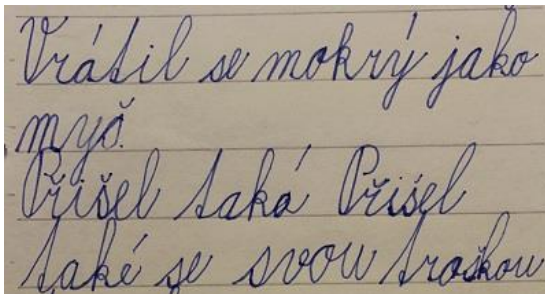 Vrátil se mokrý jako
myš.
Přišel taká Přišel
také se svou troškou